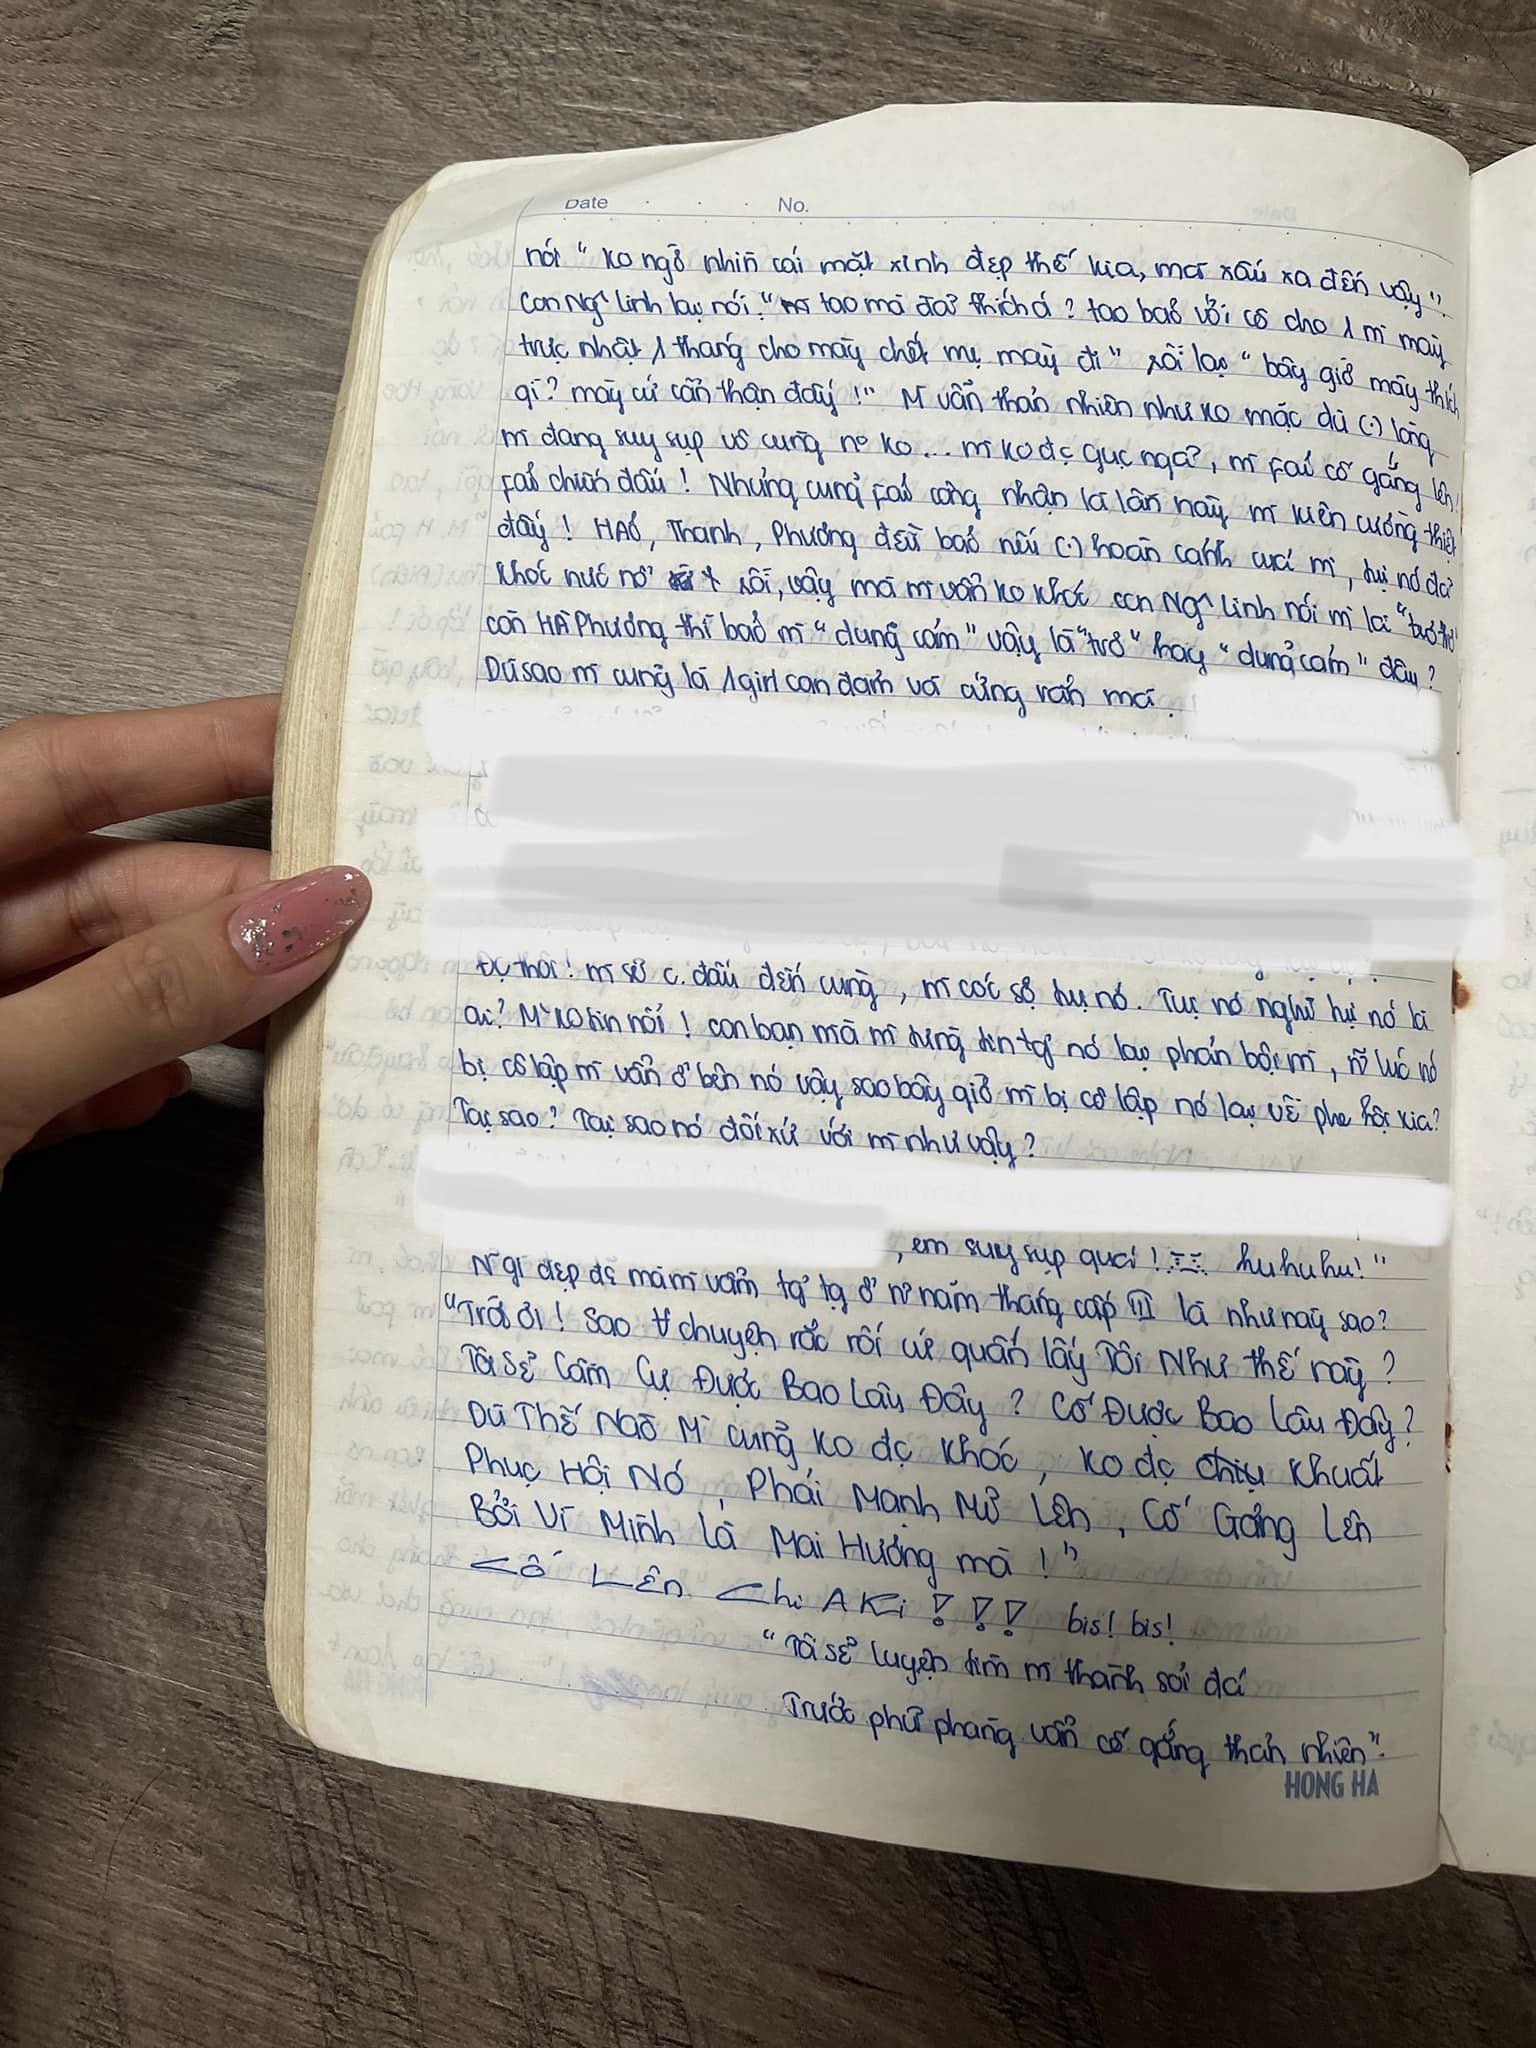 Date No.
nói "ko ngờ nhìn cái mặt xinh đẹp thế kia, mà xấu xa đến vậy".
Con Ngˆ Linh lại nói: "tao mà đã thích á? tao bảo với cô cho 1 mì mày
trực nhật 1 tháng cho mày chết mẹ mày đi" rồi lại "bây giờ mày thích
gì? mày cứ cẩn thận đấy!" M vẫn thản nhiên như ko mặc dù (.) lòng
mì đang suy sụp vô cùng nº ko... mì ko đc gục ngã, mì fải cố gắng lên!
fải chiến đấu! Nhưng cũng fải công nhận là lần này mì kiên cường thiệt
đấy! HẢO, Thanh, Phương đều bảo nếu (.) hoàn cảnh của mì, tụi nó đã
khóc nức nở rồi, vậy mà mì vẫn ko khóc con Ngˆ Linh nói mì là "trơ"
còn HÀ Phương thì bảo mì "dũng cảm" vậy là "trơ" hay "dũng cảm" đây?
Dù sao mì cũng là 1 girl can đảm và cứng rắn mà.
Đc thôi! mì sẽ c. đấu đến cùng, mì cóc sợ tụi nó. Tụi nó nghĩ tụi nó là
ai? M ko tin nổi! con bạn mà mì từng tin tg nó lại phản bội mì, lúc nó
bị cô lập mì vẫn ở bên nó vậy sao bây giờ mì bị cô lập nó lại về phe hội kia?
Tại sao? Tại sao nó đối xử với mì như vậy?
, em suy sụp quá! hu hu hu!"
N gì đẹp đẽ mà mì vẫn tg tg ở nº năm tháng cấp III là như này sao?
"Trời ơi! Sao ∀ chuyện rắc rối cứ quấn lấy Tôi Như thế này?
Tôi sẽ Cầm Cự Được Bao Lâu Đây? Cố Được Bao Lâu Đây?
Dù Thế Nào Mì cũng ko đc Khóc, ko đc chịu khuất
Phục Hội Nó, Phải Mạnh Mẽ Lên, Cố Gắng Lên
Bởi Vì Mình Là Mai Hương mà!"
Cố Lên Chi AKi !!! bis! bis!
"Tôi sẽ luyện tim mì thành sỏi đá
Trước phũ phàng vẫn cố gắng thản nhiên".
HONG HA